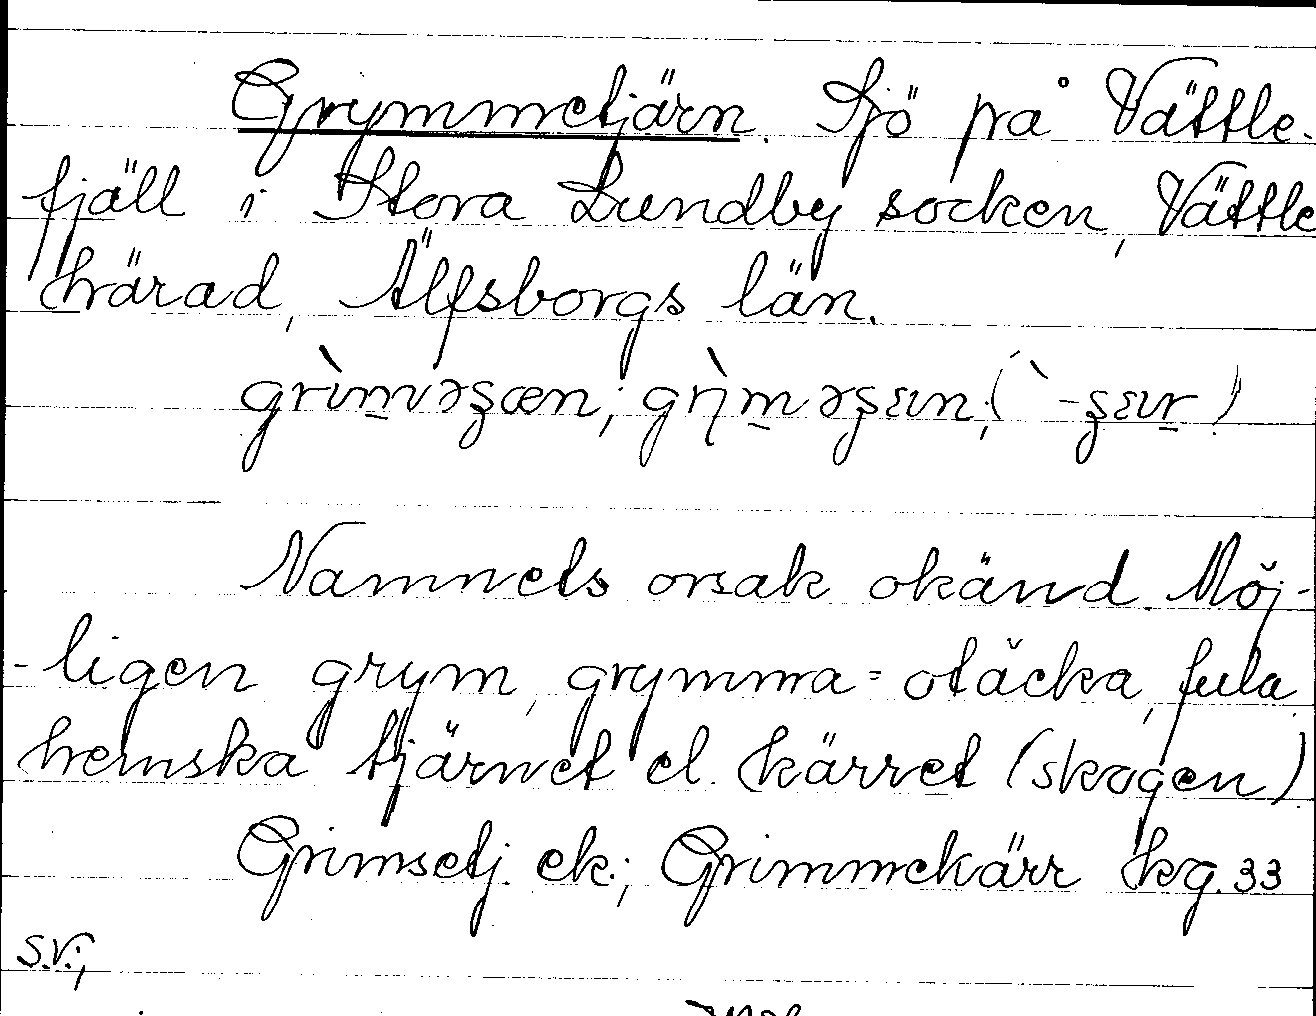 Grymmetjärn. Sjö på Vättle-
fjäll i Stora Lundby socken, Vättle
härad, Älfsborgs län.
grìməʂæn; grìməʂɛın; (` -ʂɛır)
Namnets orsak okänd. Möj-
-ligen grym, grymma = otäcka, fula
hemska tjärnet el. kärret (skogen)
Grimsetj. ek.; Grimmekärr hkg. 33
S.V.;